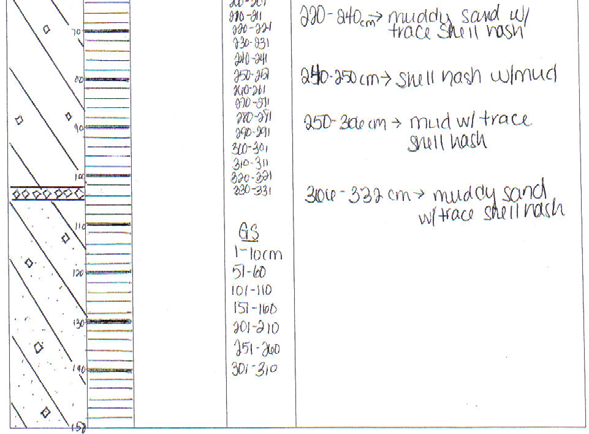 70
80
90
100
110
120
130
140
150
210-211
220-221
230-231
240-241
250-251
260-261
270-271
280-281
290-291
300-301
310-311
320-321
330-331
GS
1-10cm
51-60
101-110
151-160
201-210
251-260
301-310
220-240cm→ muddy sand w/
trace shell hash
240-250cm→ shell hash w/mud
250-306cm→ mud w/trace
shell hash
306-332 cm→ muddy sand
w/trace shell hash